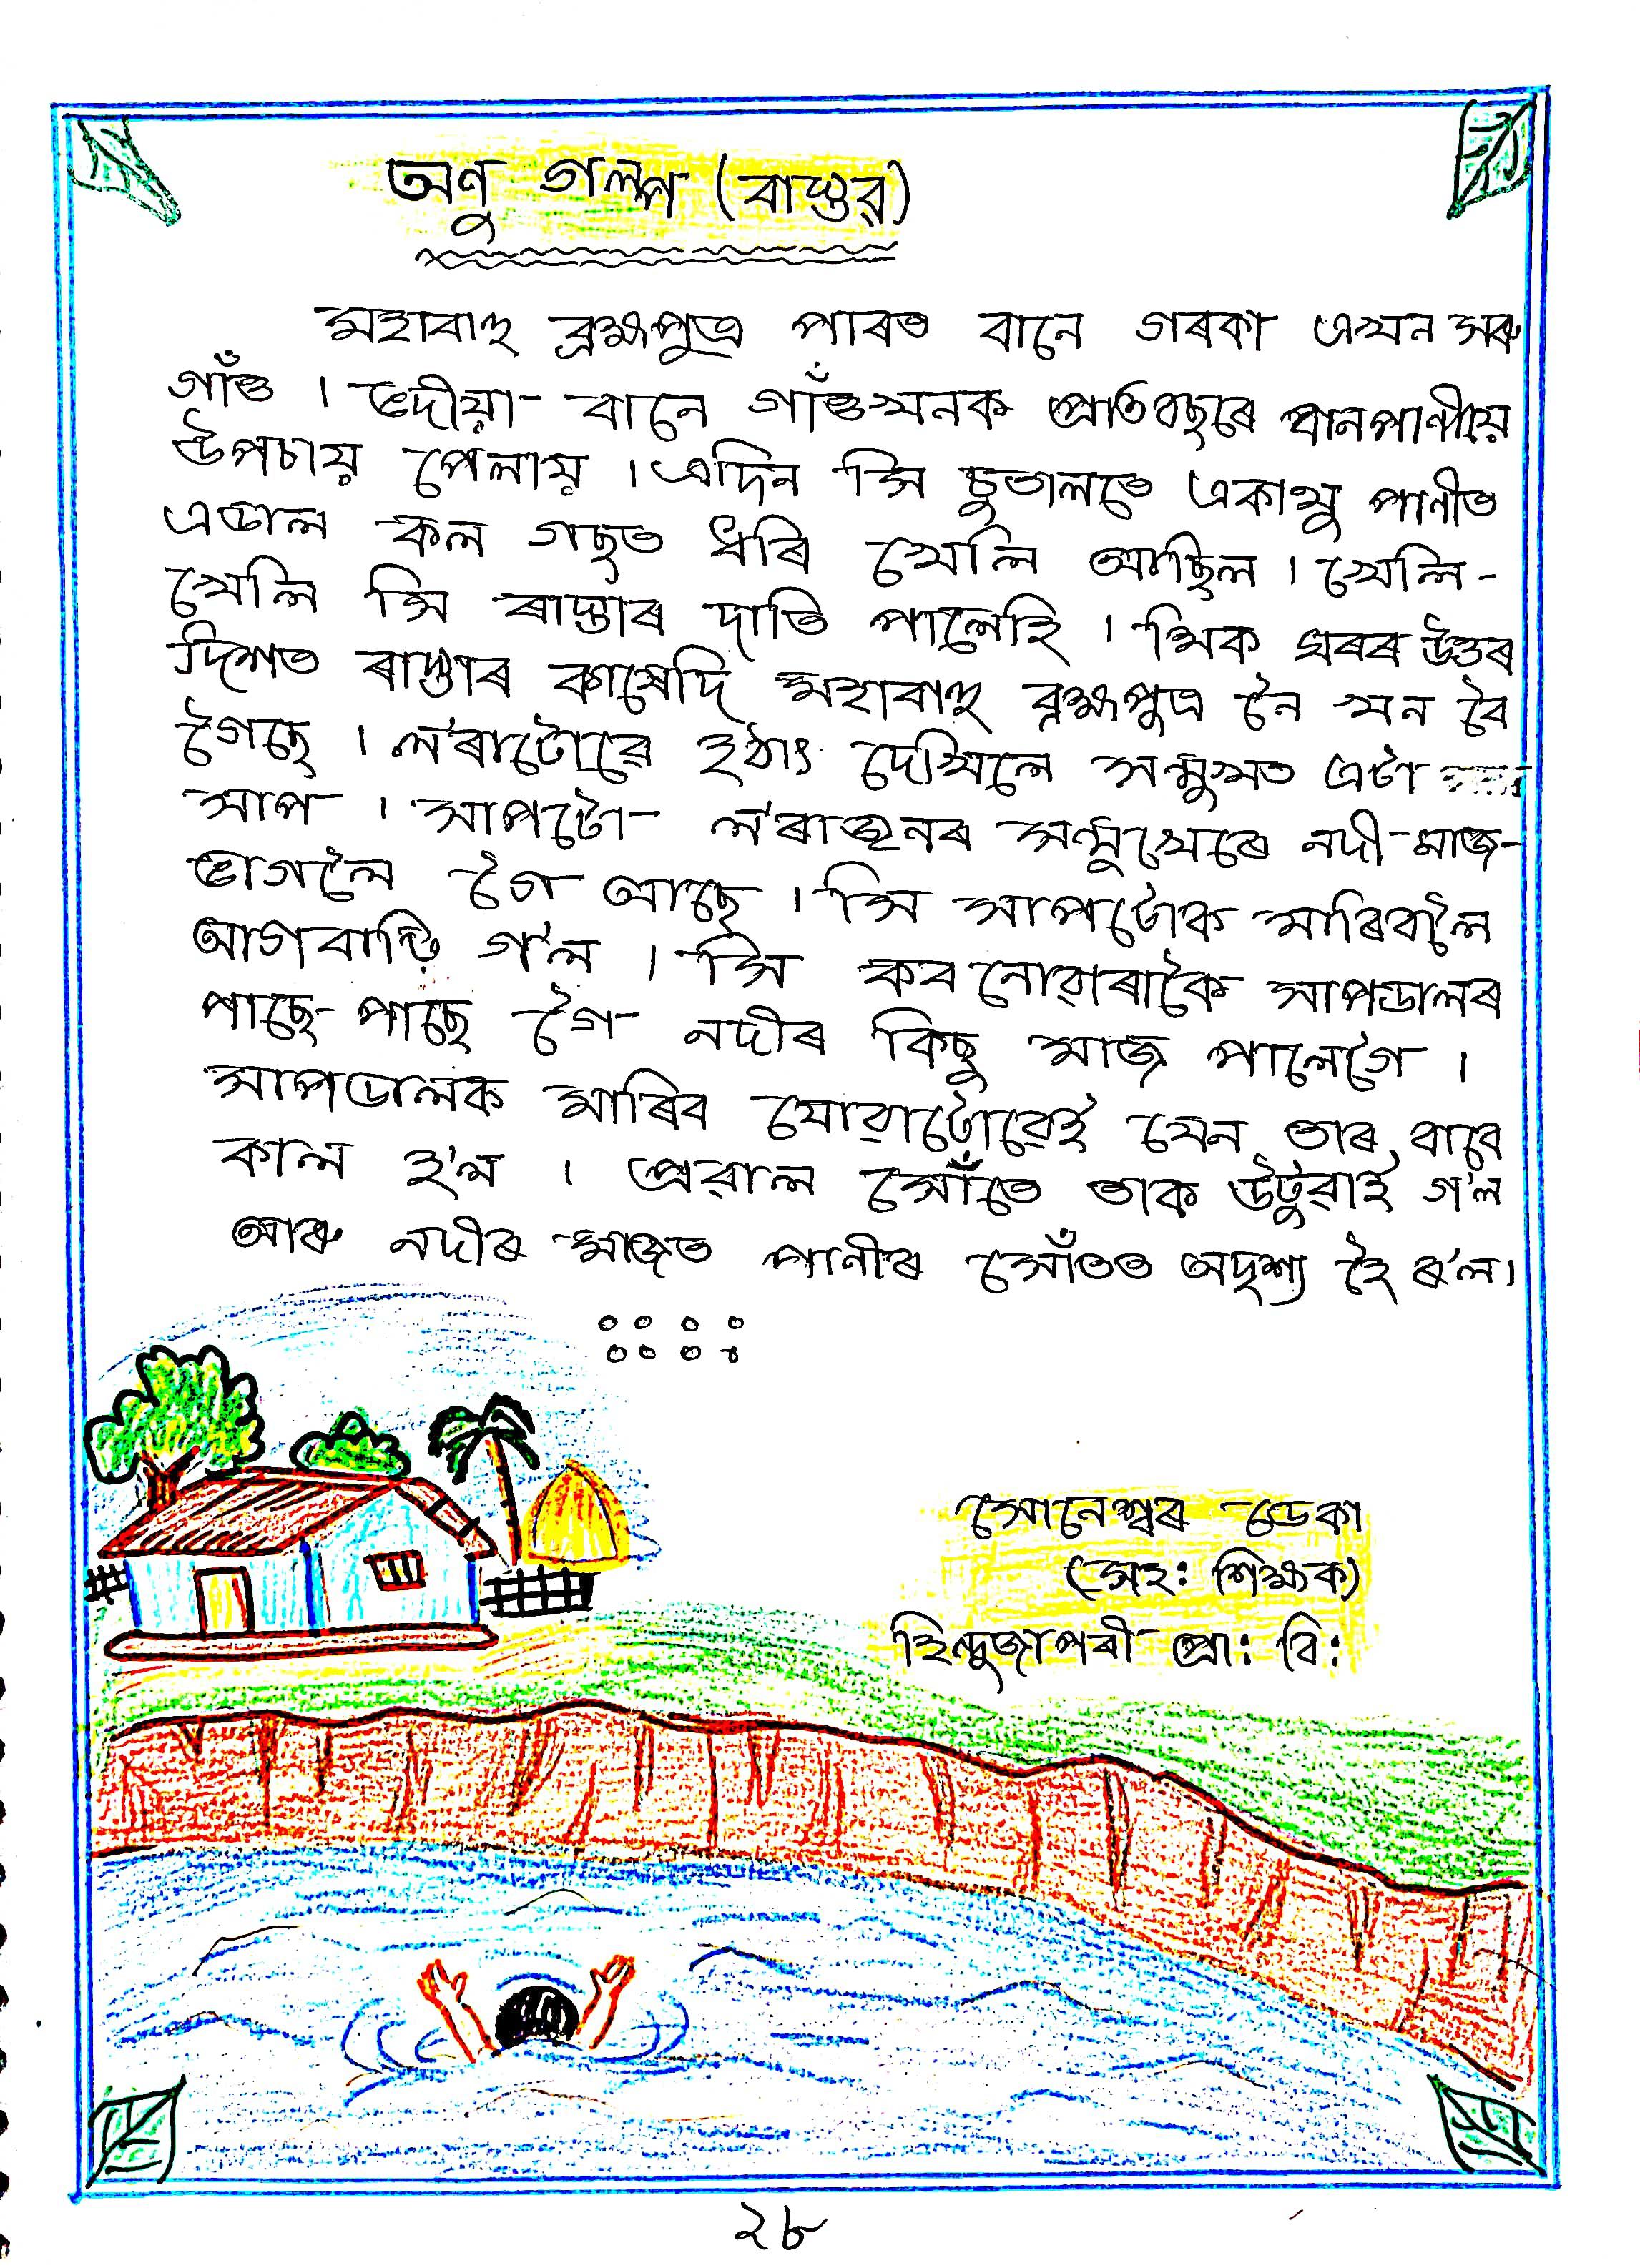 অণু গল্প (বাস্তৱ)
মহাবাহু ব্ৰহ্মপুত্ৰ পাৰত বানে গৰকা এখন সৰু
গাঁও । ভদীয়া বানে গাঁওখনক প্ৰতিবছৰে বানপানীয়ে
উপচায় পেলায় । এদিন সি চুতালতে একাঠু পানীত
এডাল কল গছত ধৰি খেলি আছিল । খেলি-
খেলি সি ৰাস্তাৰ দাতি পালেহি । ঠিক ঘৰৰ উত্তৰ
দিশত ৰাস্তাৰ কাষেদি মহাবাহু ব্ৰহ্মপুত্ৰ নৈ খন বৈ
গৈছে । ল'ৰাটোৱে হঠাং দেখিলে সন্মুখত এটা
সাপ । সাপটো ল'ৰাজনৰ সন্মুখেৰে নদী মাজ-
ভাগলৈ গৈ আছে । সি সাপটোক মাৰিবলৈ
আগবাঢ়ি গ'ল । সি কব নোৱাৰাকৈ সাপডালৰ
পাছে পাছে গৈ নদীৰ কিছু মাজ পালেগৈ ।
সাপডালক মাৰিব যোৱাটোৱেই যেন তাৰ বাবে
কাল হ'ল । প্ৰৱাল সোঁতে তাক উটুৱাই গ'ল
আৰু নদীৰ মাজত পানীৰ সোঁতত অদৃশ্য হৈ ৰ'ল।
সোনেশ্বৰ ডেকা
(সহ: শিক্ষক)
হিন্দুজাপৰী প্ৰা: বি:
২৮